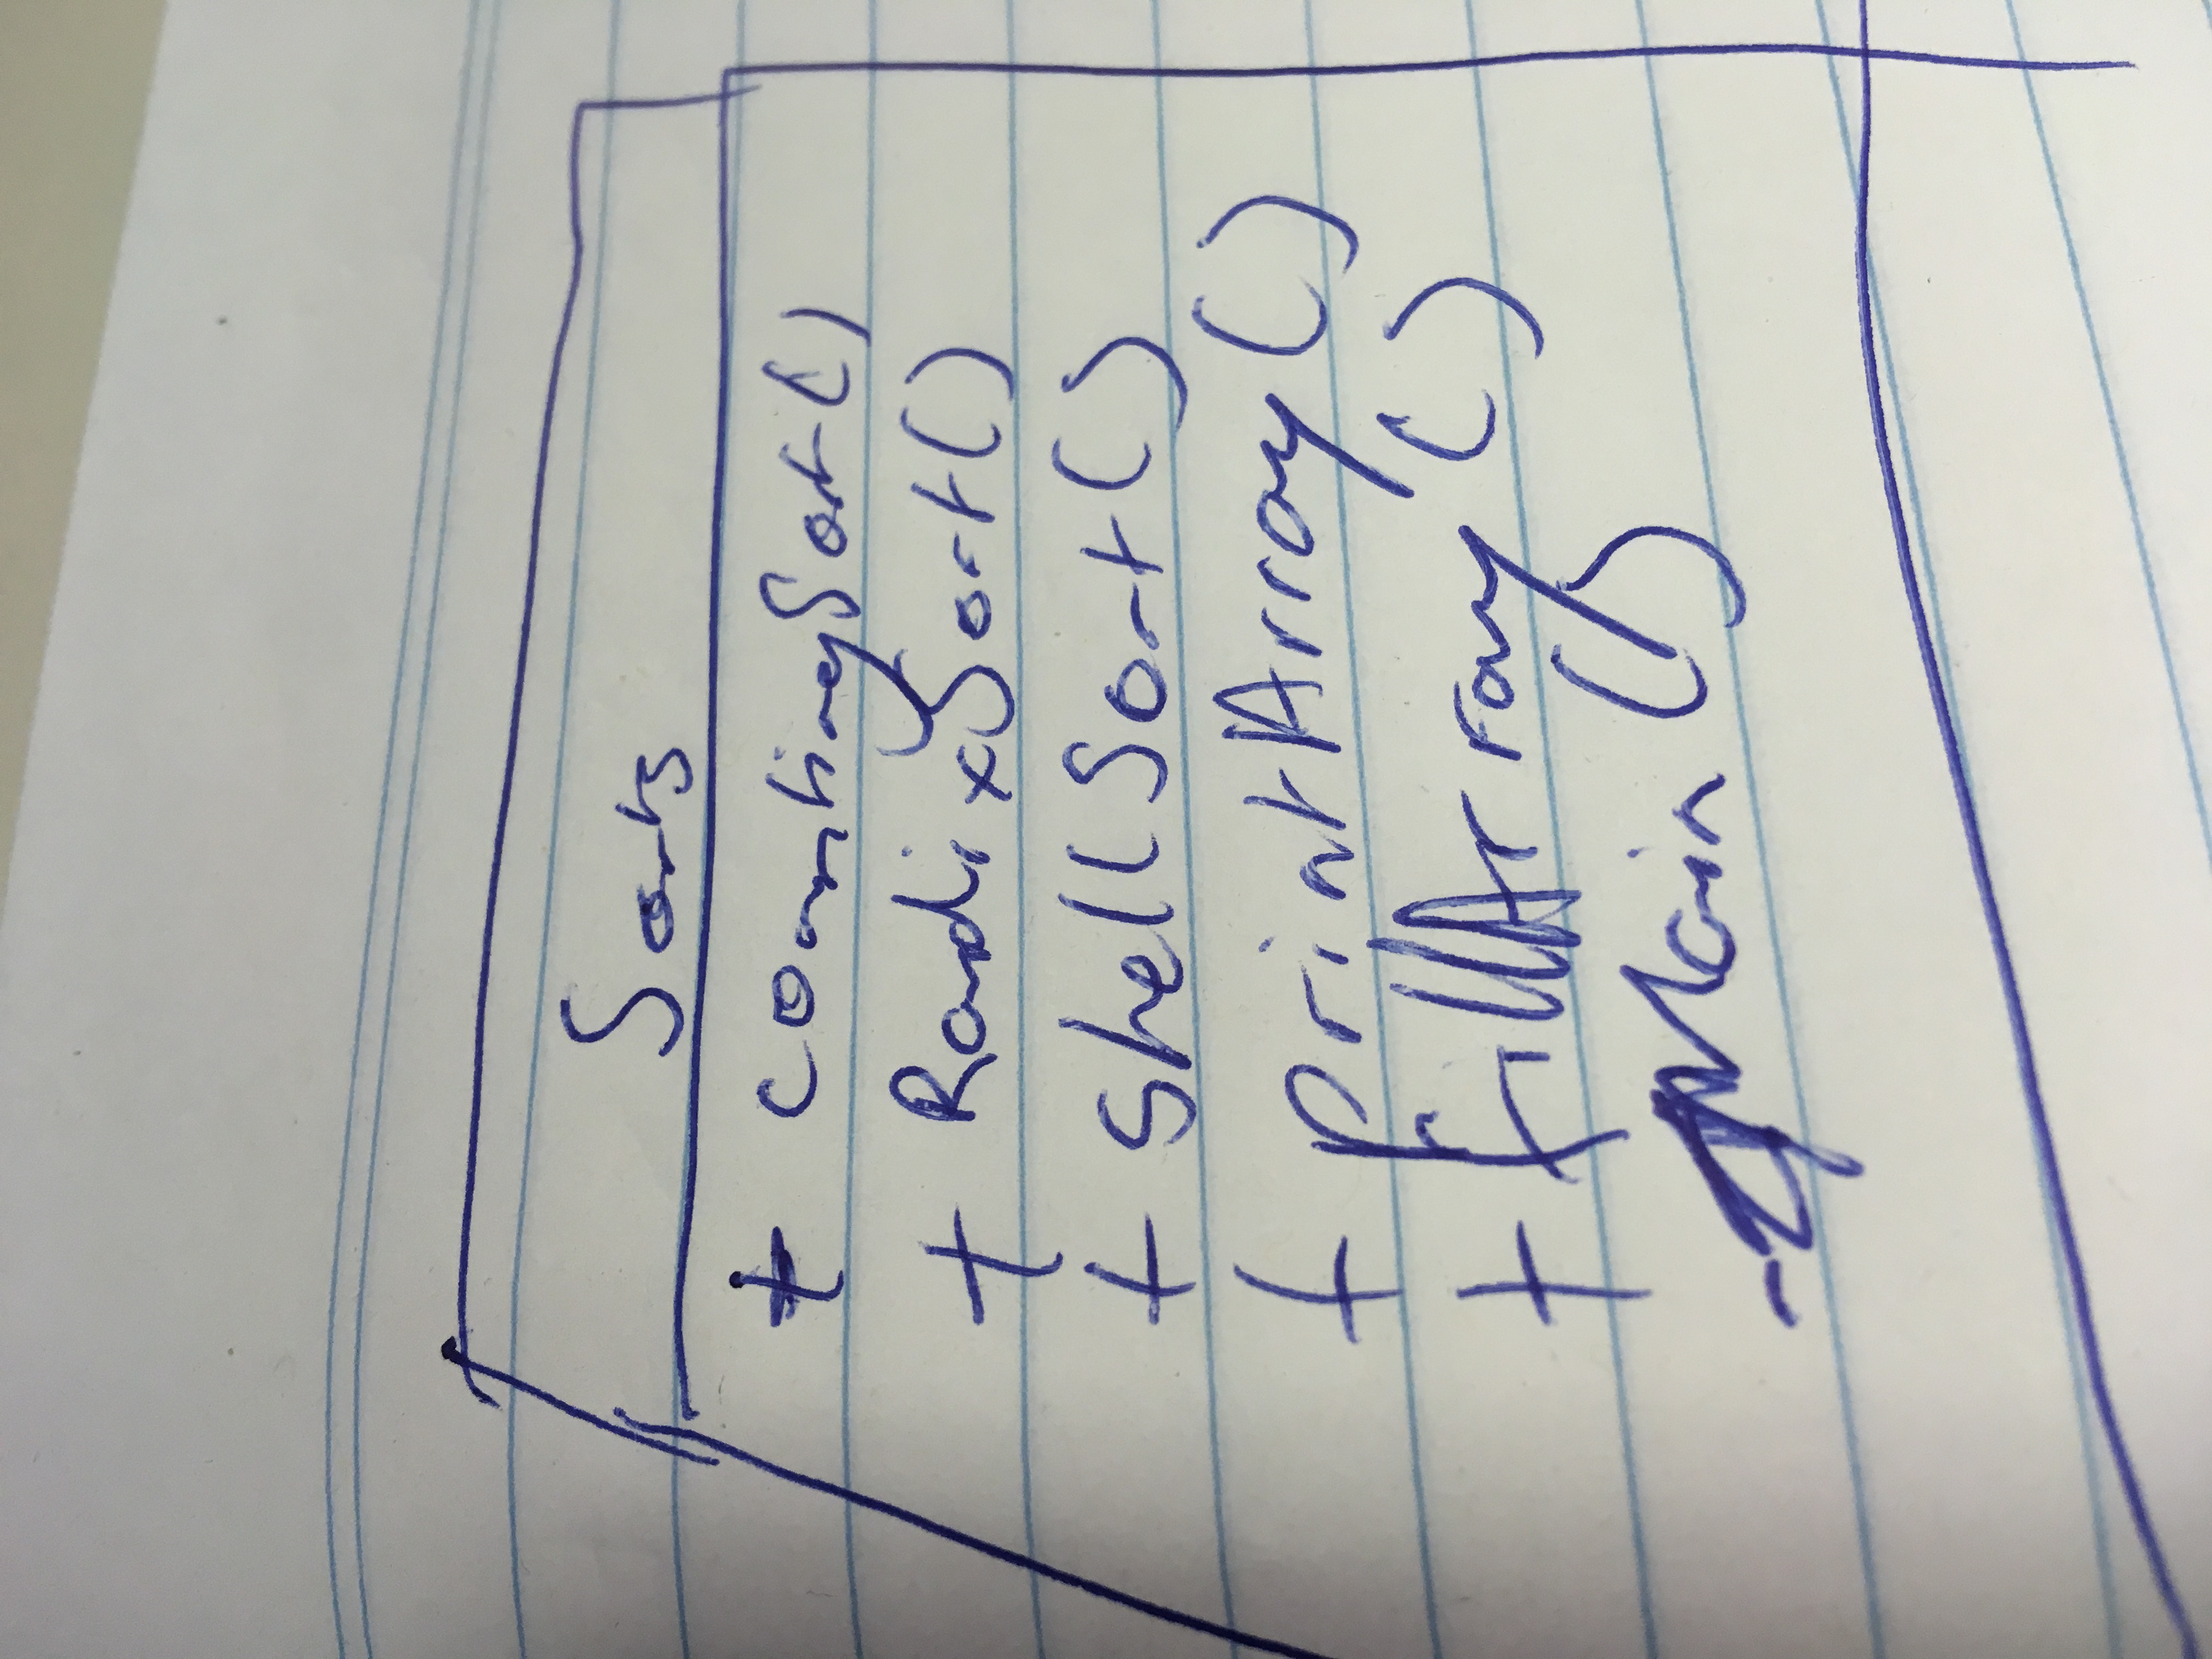 Sorts
+ countingSort()
+ RadixSort()
+ ShellSort()
+ printArray()
+ fillArray()
- Main()